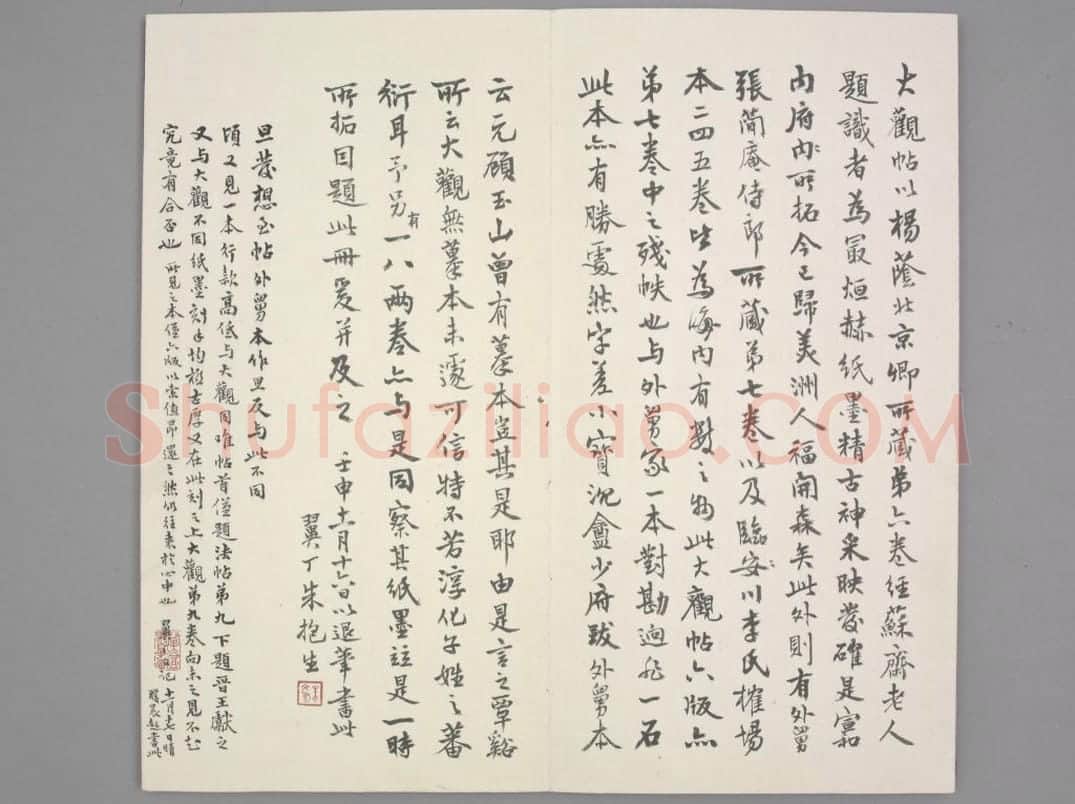 大觀帖以楊蔭北京卿所藏第六卷經蘇齋老人
題識者為最烜赫紙墨精古神采映發確是宣和
內府所拓今已歸美洲人福開森矣此外則有外舅
張簡庵侍郎所藏第七卷以及臨川李氏榷場
本二四五卷皆為海內有數之物此大觀帖六版亦
第七卷中之殘帙也与外舅家一本對勘迥非一石
此本亦有勝處然字差小寶沈盦少府跋外舅本
云元顧玉山曾有摹本豈其是耶由是言之覃谿
所云大觀無摹本未遂可信特不若淳化子姓之蕃
衍耳予另有一八兩卷亦与是同察其紙墨竝是一時
所拓因題此冊爰并及之 壬申十一月十六日以退筆書此
翼丁朱抱生
旦發想至帖外舅本作旦反与此不同
頃又見一本行款高低与大觀同唯帖首僅題法帖第九下題晉王獻之
又与大觀不同紙墨刻手均極古厚又在此刻之上大觀第九卷向未之見不知
究竟有合否也 所見之本僅六版以索值昂還之然仍往來於心中也 記 十一月 日晴
書此
Shufaziliao.COM